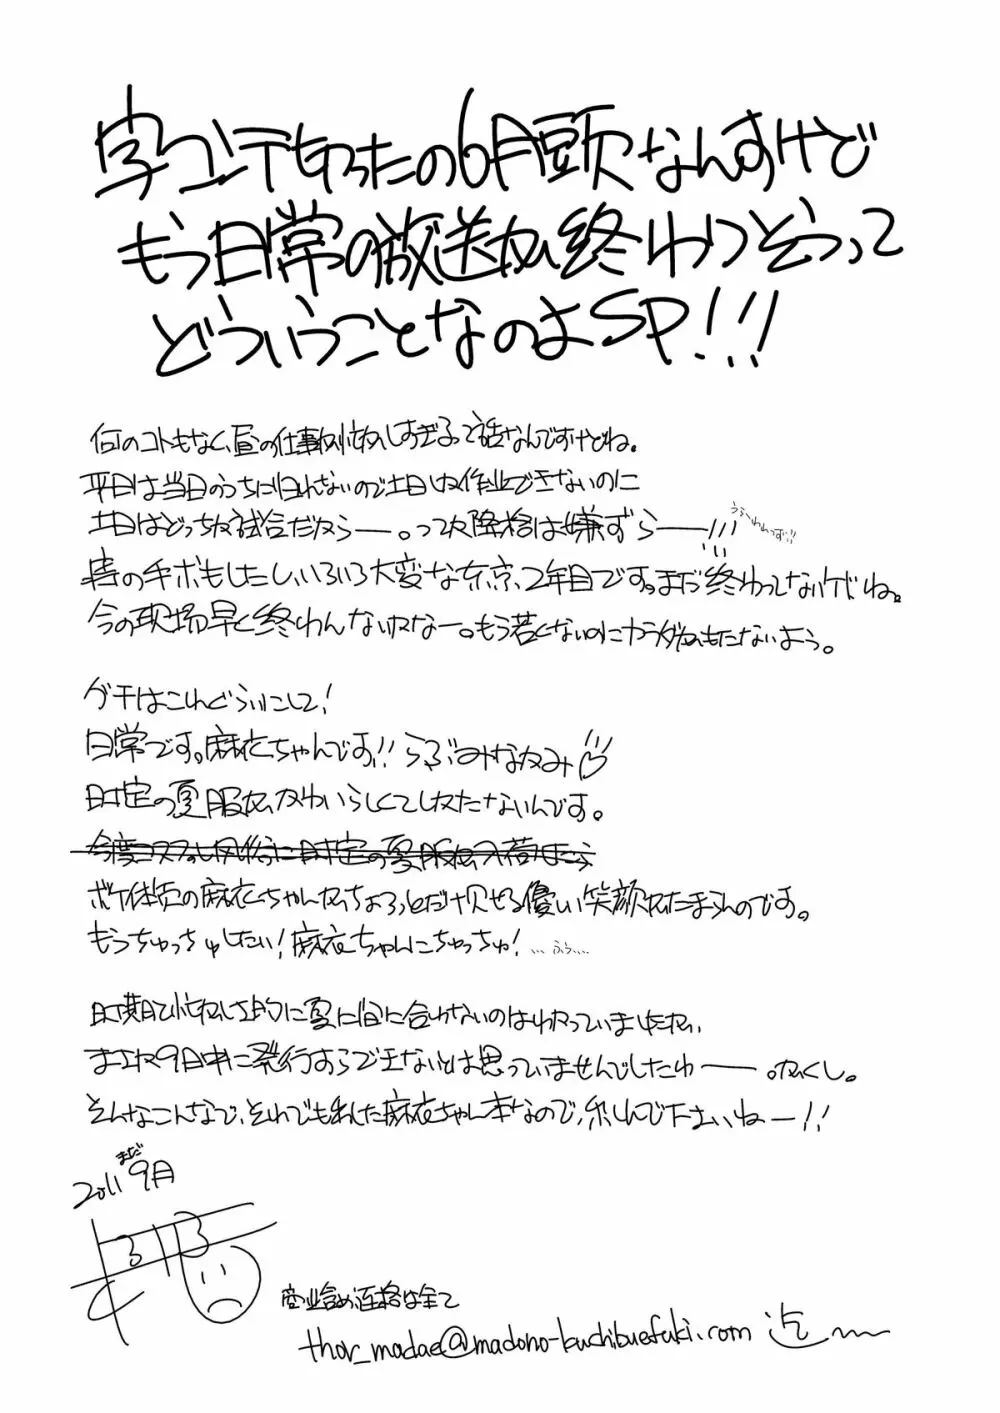 字コンテ切ったの6月頭なんすけど
もう日常の放送が終わりそうって
どういうことなのよSP!!!
何のコトもなく、昼の仕事が忙しすぎるって話なんですけどね。
平日は当日のうちに帰れないので土日しか作業できないのに
土日はどっちも試合だからー。って降格は嫌ずらー!!!
妻の手ボもしたしいろいろ大変な東京、2年目です。まだ終わってないけどね。
今の現場早く終わんないかなー。もう若くないのにカラダがもたないよう。
グチはこれぐらいにして!
日常です。麻衣ちゃんです!! らぶみなかみ♡
時定の夏服がかわいらしくてしかたないんです。
今度コスプレ風俗に時定の夏服が入荷
ボケ体質の麻衣ちゃんがちょろっとだけ見せる優しい笑顔がたまらんのです。
もうちゅっちゅしたい!麻衣ちゃんにちゅっちゅ! … ふぅ…
時期て忙しさ的に夏に間に合わないのはわかっていましたが、
まさか9月中に発行すらできないとは思っていませんでしたわー。がくし。
そんなこんなで、それでも出た麻衣ちゃん本なので、楽しんで下さいねー!!
2011 まだ 9月
商業含め連絡は全て
thor_madae@madono-kuchibuefuki.com 迄〜